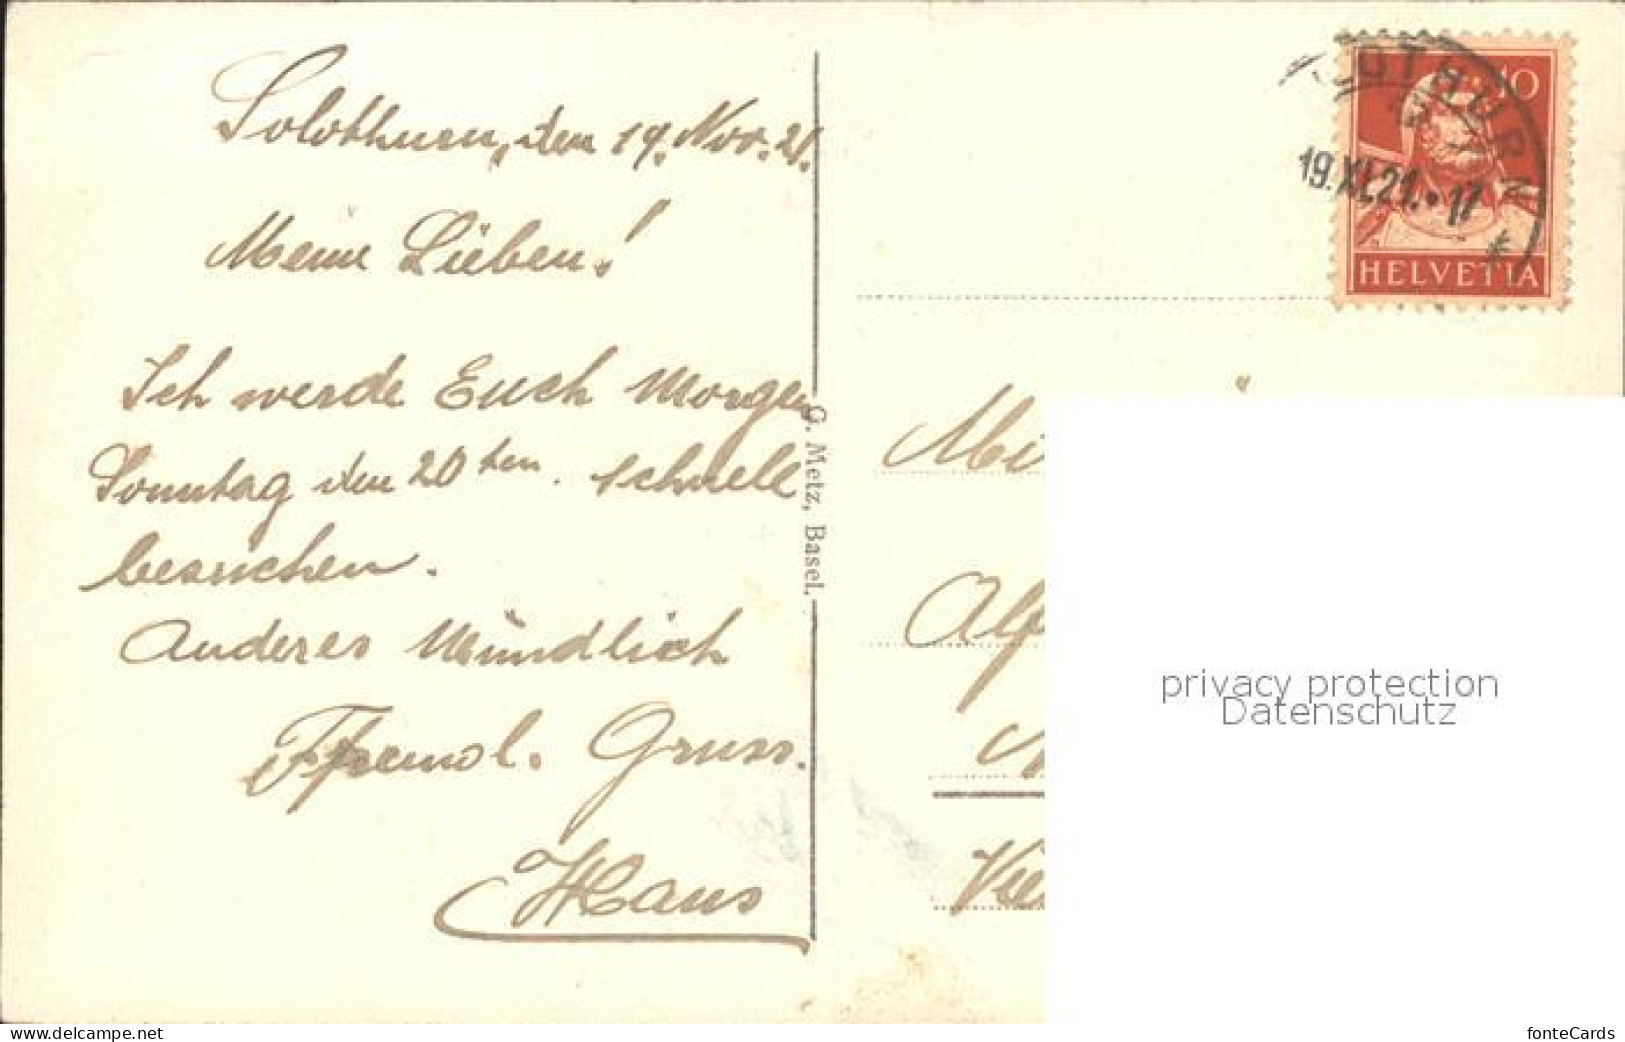 Solothurn, den 19. Nov. 21.
Meine Lieben!
Ich werde Euch Morgen
Sonntag den 20ten. schnell
besuchen.
Anderes Mündlich
Freundl. Gruss.
Hans
G. Metz, Basel.
SOLOTHURN
19.XI.21. • 17
10
HELVETIA
Alf
privacy protection
Datenschutz
www.delcampe.net
fonteCards